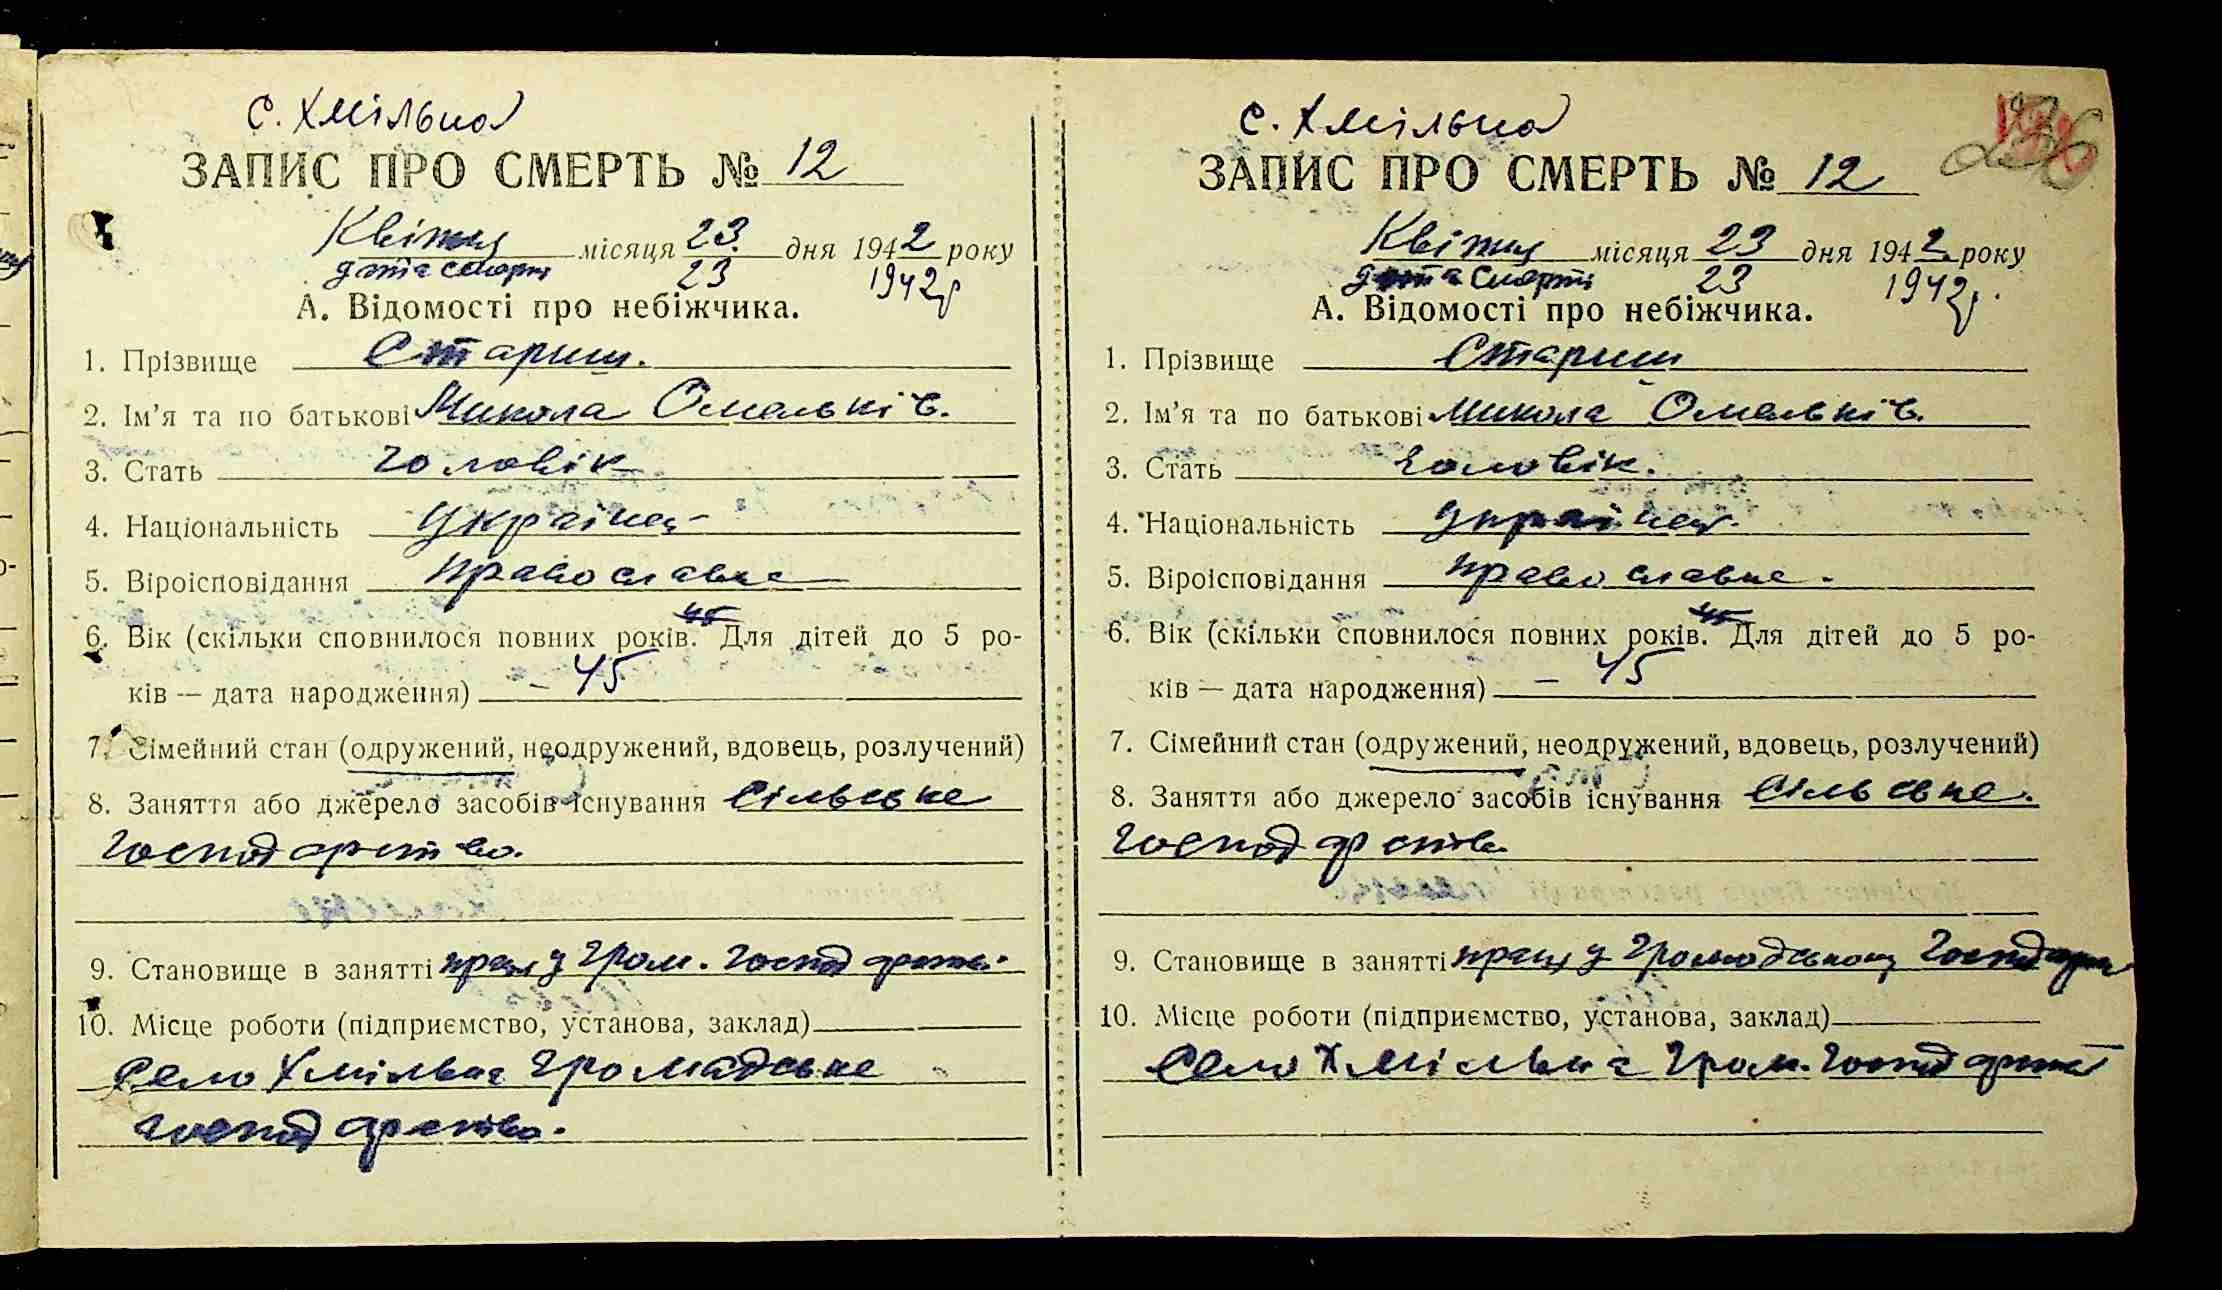 с. Хмільна
ЗАПИС ПРО СМЕРТЬ № 12
Квітня місяця 23 дня 1942 року
дата смерти 23 1942р
А. Відомості про небіжчика.
1. Прізвище Стариш.
2. Ім'я та по батькові Микола Омельків.
3. Стать чоловік
4. Національність українец
5. Віроісповідання православне
6. Вік (скільки сповнилося повних років. 45 Для дітей до 5 ро-
ків — дата народження) – 45
7. Сімейний стан (одружений, неодружений, вдовець, розлучений)
8. Заняття або джерело засобів існування Сільське
господарство.
9. Становище в занятті працю у гром. господарстві.
10. Місце роботи (підприємство, установа, заклад)
село Хмільна громадське
господарство.
с. Хмільна
ЗАПИС ПРО СМЕРТЬ № 12
Квітня місяця 23 дня 1942 року
дата смерти 23 1942р.
А. Відомості про небіжчика.
1. Прізвище Стариш
2. Ім'я та по батькові Микола Омельків.
3. Стать чоловік.
4. Національність українец.
5. Віроісповідання православне.
6. Вік (скільки сповнилося повних років. 45 Для дітей до 5 ро-
ків — дата народження) – 45
7. Сімейний стан (одружений, неодружений, вдовець, розлучений)
8. Заняття або джерело засобів існування Сільське.
господарство
9. Становище в занятті у громадському
10. Місце роботи (підприємство, установа, заклад)
село Хмільна гром. господарство